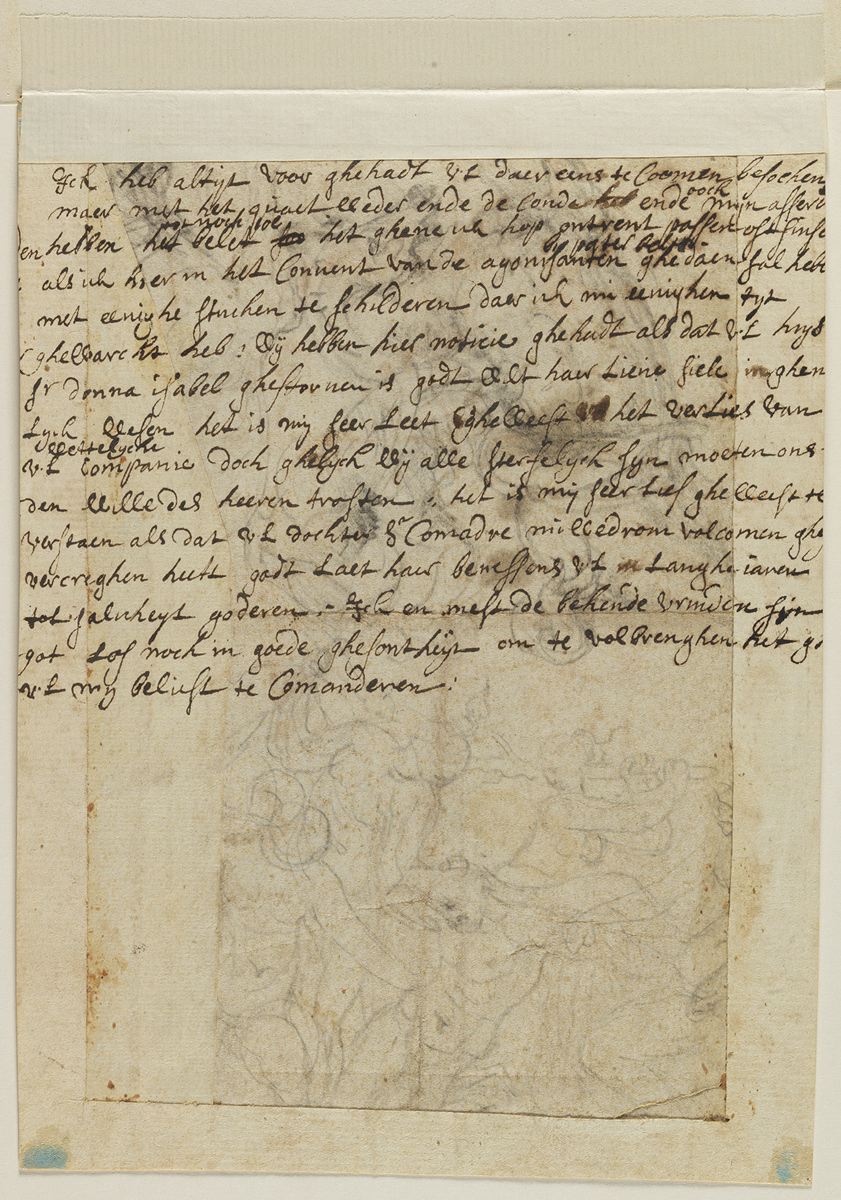 Ick heb altyt voor ghehadt vL daer eens te Coomen besoeken
maer met het quaet weder ende de Conde ende oock mijn affero
den hebben tot noch toe het belet het ghene ick hop ontrent passen oft sinse
als ick hier in het Convent van de agonisanten by pater ghedaen sal hebb
met eenighe stucken te schilderen daer ick nu eenighen tyt
ghewarckt heb : Wij hebben hier noticie ghehadt als dat vL huys
fr donna isabel ghestorven is godt wilt haer Lieve siele inghen
Lyck wesen het is mij seer Leet gheweest het verLies van
vL Wettelycke Companie doch ghelyck Wij alle sterfelyck syn moeten ons
den wille des heeren troosten : het is mij seer Lief gheweest te
verstaen als dat vL dochter Comadre volcomen ghe
vercreghen heeft godt Laet haer beneffens vL Langhe iaren
tot salicheyt goderen :- Ick en mest de bekende vrinden syn
got Lof noch in goede ghesontheyt om te volbrenghen het g
vL mij belieft te Comanderen :